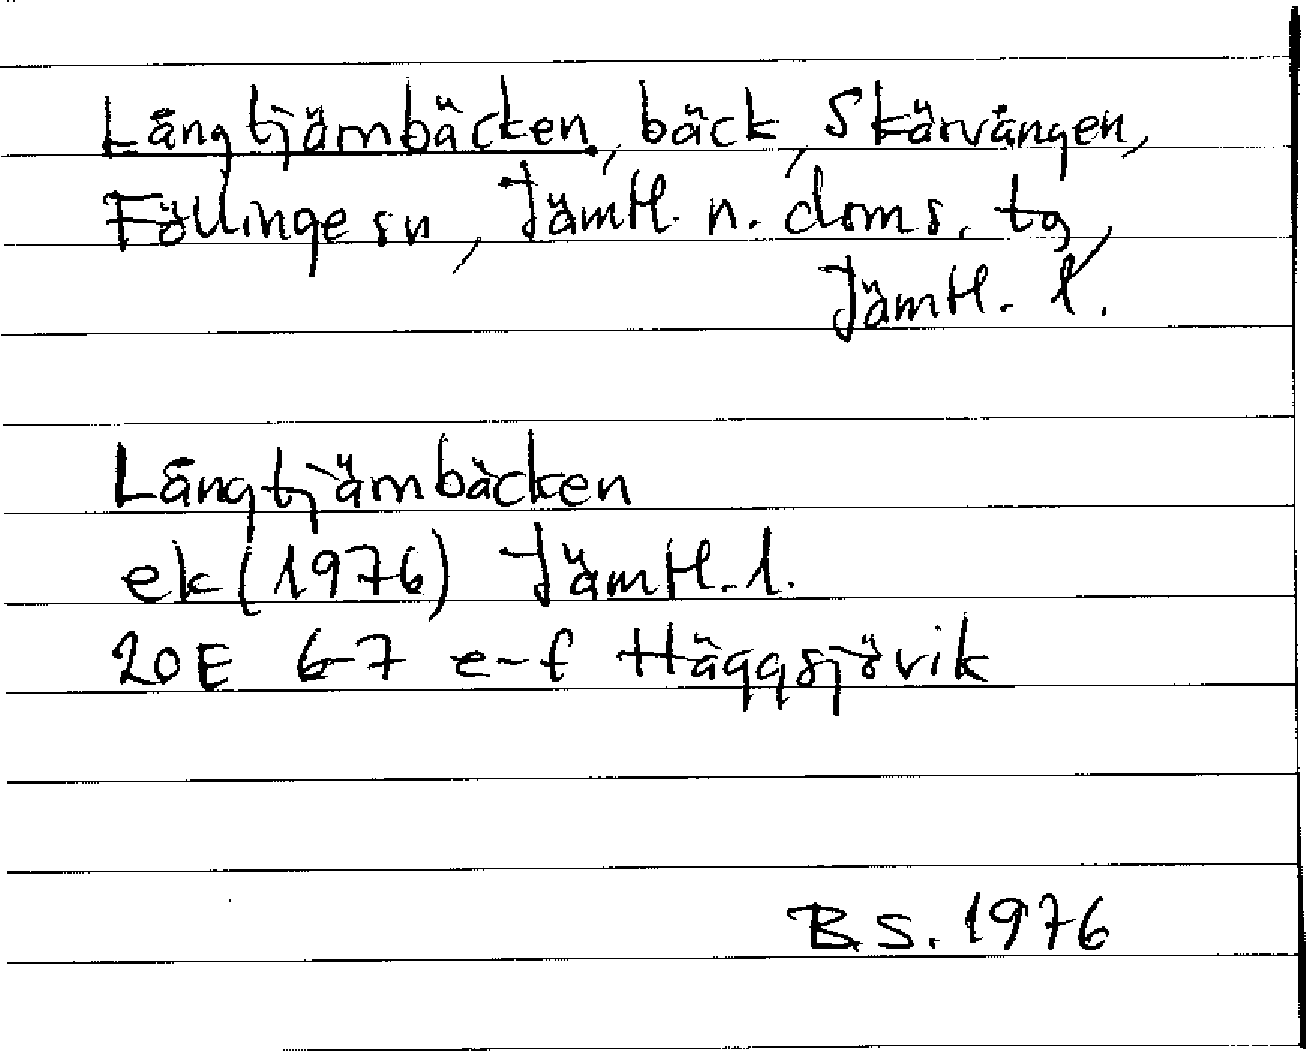 Långtjärnbäcken, bäck, Skärvången,
Föllinge sn, Jämtl. n. doms. tg,
Jämtl. l.
Långtjärnbäcken
ek (1976) Jämtl. l.
20E 6-7 e-f Häggsjövik
B.S. 1976